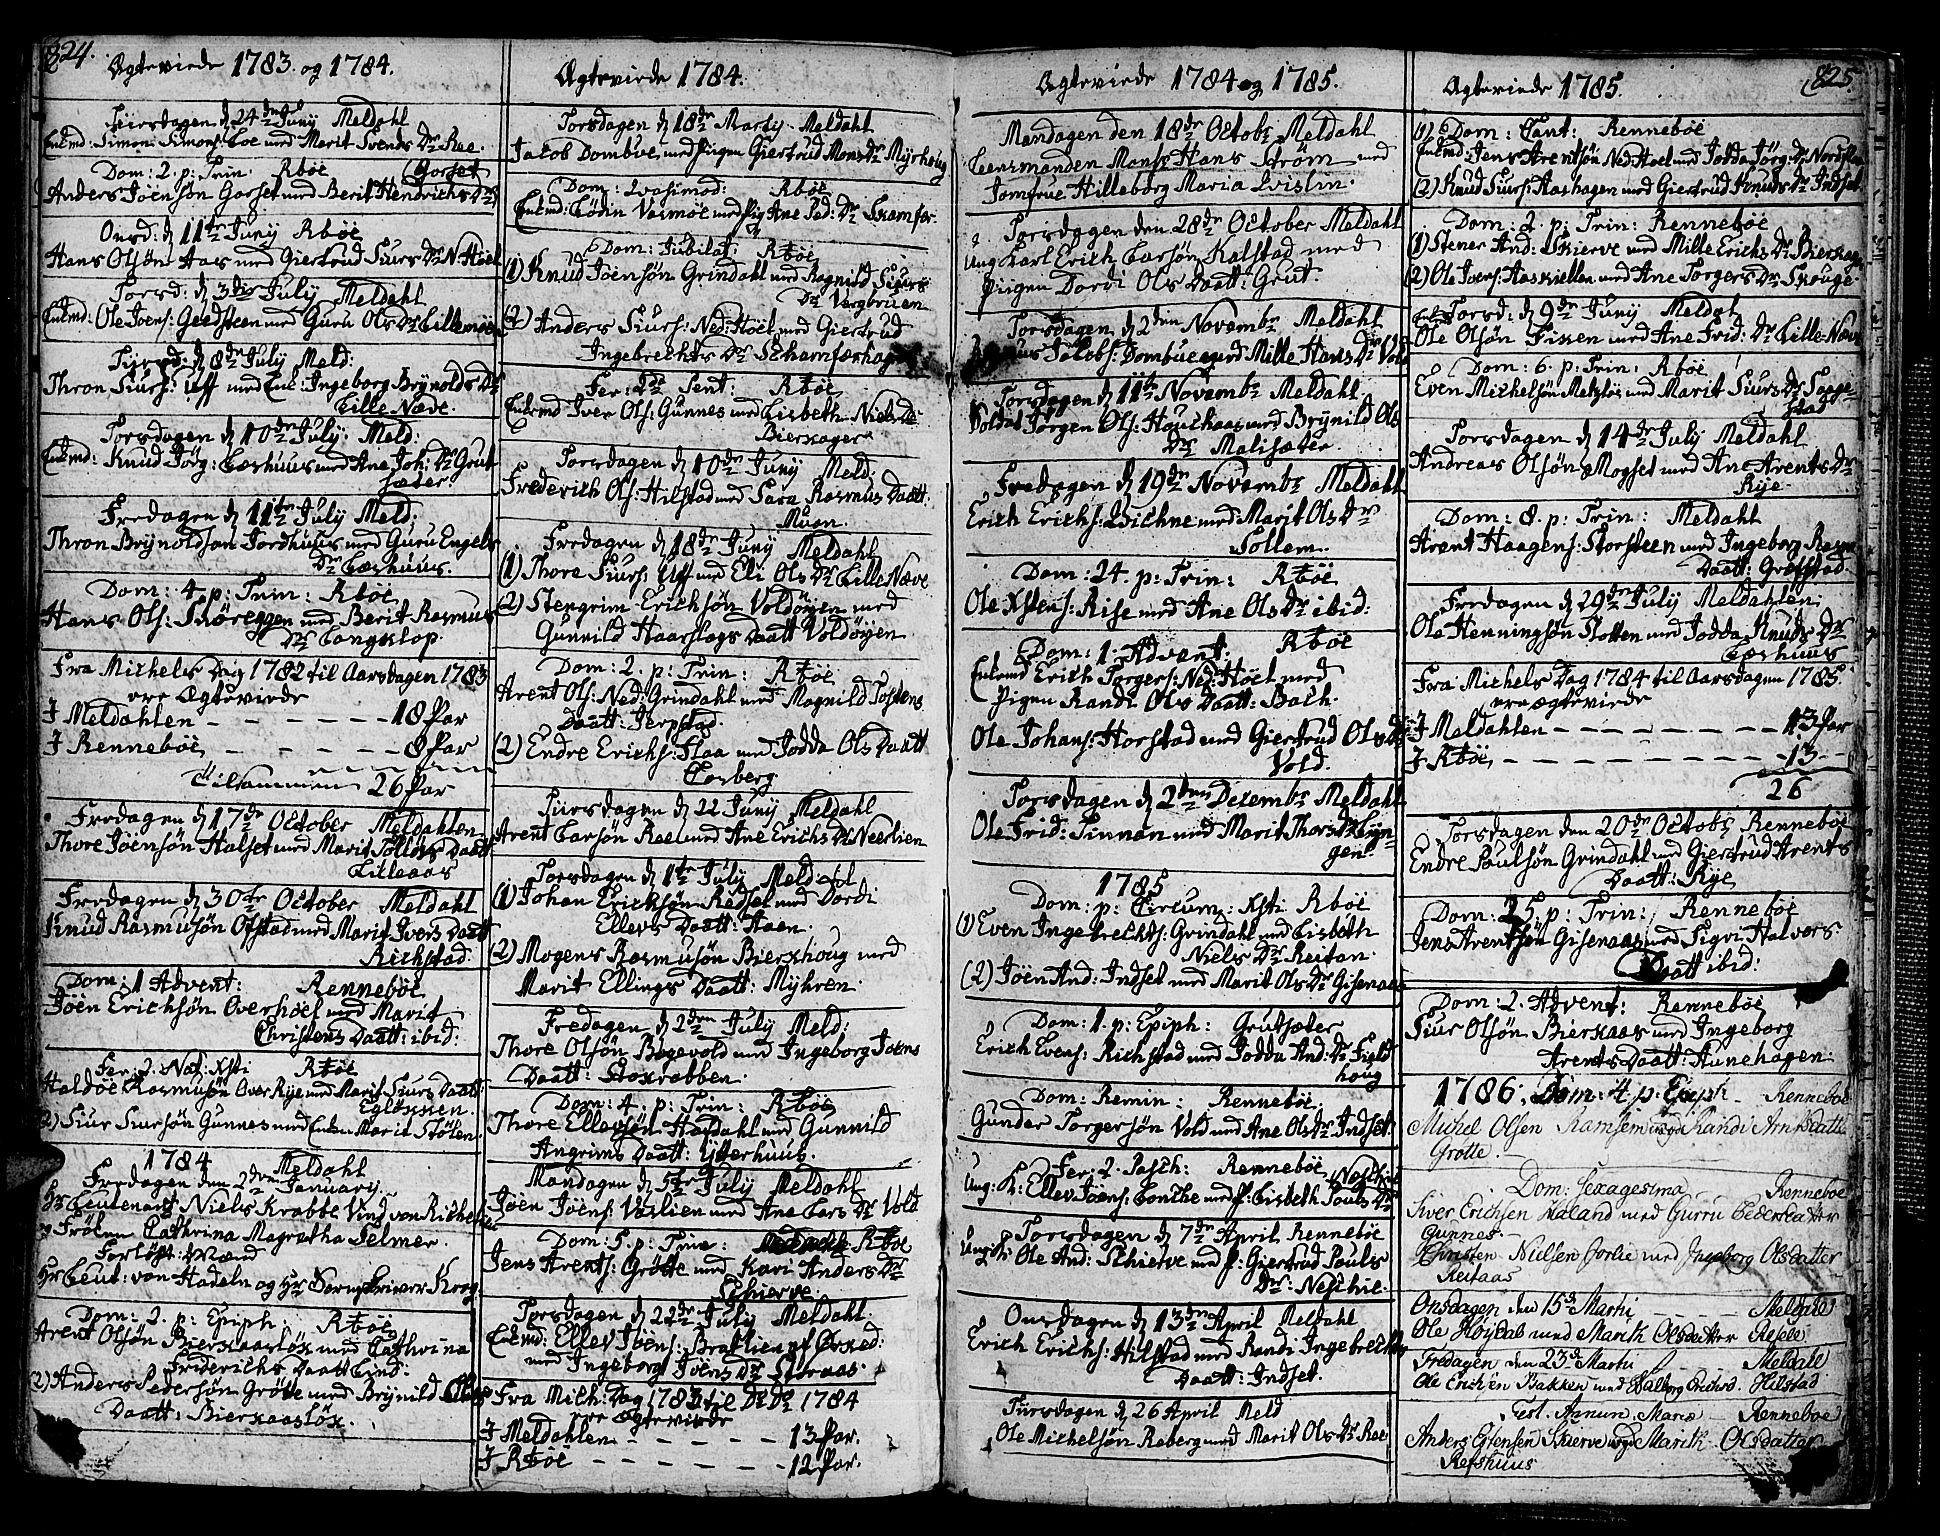 824.
Ægteviede 1783. og 1784.
Tiirsdagen d 24de Juny Meldahl
Enkmd: Simen Simens: Loe med Marit Svends Dr Rae.
Dom: 2. p: Trin. Rbøe
Anders Joensøn Gorset med Berit Hendrichs Dr Gorset
Onsd: d 11te Juny Rbøe
Hans Olsøn Aas med Giertrud Siurs Dr N: Höel
Torsd: d 3die July Meldahl
Enkmd: Ole Joens: Geedsteen med Guru Ols Dr Lillemöe
Tiirsd: d 8de July Meld:
Thron Siurs: Uff med Enk: Ingeborg Brynolds Dr
Lille Næve.
Torsdagen d 10de July: Meld:
Enkmd: Knud Jörg: Læshuus med Ane Joh: Dr Grut
sæder.
Fredagen d 11te July Meld:
Thron Brynoldsøn Jordhuus med Guru Engels
Dr Læshuus.
Dom: 4. p: Trin: Rbøe
Hans Ols: Skoreggen med Berit Rasmus
Dr Langklop.
Fra Michels Dag 1782 til Aarsdagen 1783
ere Ægteviede
J Meldahlen - - - - - - 18 Par
J Renneböe - - - - - 8 Par
Tilsammen 26 Par
Fredagen d 17de October Meldahlen
Thore Jöensøn Halset med Marit Tollevs Daatt
Lilleaas
Fredagen d 30te October Meldahl
Knud Rasmusøn Ofstad med Marit Ivers Daatt
Richstad.
Dom: 1 Advent: Renneböe
Jöen Erichsøn Overhöel med Marit
Christens Daatt: ibid:
Fer: 2. Nat: Xsti Rbøe
Haldoe Rasmusøn Over Rye med Marit Siurs Daatt:
Egløkken.
2) Siur Siursøn Gunnes med Enken Marit Stölen.
1784 Meldahl
Fredagen den 2den January
Hr Leutenant Niels Krabbe Vind von Richelieu
og Fröken Cathrina Magretha Selmer.
Forlöft: Mænd
Hr Leut: von Hadeln og Hr Sorenskriver Krog
Dom: 3. p: Epiph: Rbøe
Arent Olsøn Bierkaasløk med Cathrina
Friderichs Daatt Lind:
(2) Anders Pedersøn Grötte med Brynild Ellevs
Daatt: Bierkaasløk.
Ægteviede 1784.
Torsdagen d 18de Marty. Meldahl
Jacob Dombue med Pigen Giertrud Mons Dr Myrhoug
Dom: Qvasimod: Rbøe
Enkmd: Lödin Vasmöe med Pig Ane Ped: Dr Skamfer:
Dom: Jubilat: Rbøe
(1) Knud Joensøn Grindahl med Ragnild Siurs
Dr Vergbruen
(2) Anders Siurs: Ned: Höel med Giertrud
Ingebrechts Dr Schamfærhag
Fer: 2de Pent: Rbøe
Enkmd Iver Ols: Gunnes med Lisbeth Niels Dr
Bierkager
Torsdagen d 10de Juny Meld.
Frederich Ols: Hilstad med Sara Rasmus Daatt:
Muan.
Fredagen d 18de Juny Meldahl
(1) Thore Siurs: Uff med Eli Ols Dr Lille Næve
(2) Stengrim Erichsøn Voldöyen med
Gunnild Haarslogs Daatt Voldöyen
Dom: 2. p: Trin: Rbøe
Arent Ols: Ned: Grindahl med Magnild Tostens
Daatt: Jerpstad
(2) Endre Erichs: Flaa med Jodda Ols Daatt
Losberg
Tiirsdagen d 22 Juny Meldahl
Arent Larsøn Rae med Ane Erichs Dr Neerlien
Torsdagen d 1te July Meldahl
(1) Johan Erichsøn Radset med Dordi
Ellevs Daatt: Aaen.
(2) Mogens Rasmusøn Bierkhoug med
Marit Ellings Daatt: Myhren.
Fredagen d 2den July Meld:
Thore Olsøn Bogevold med Ingeborg Joens
Daatt: Stokrabben.
Dom: 4. p: Trin: Rbøe
Thore Ellevsøn Hafdahl med Gunnild
Angrims Daatt: Ytterhuus.
Mandagen d 5te July Meldahl
Jöen Jöens: Vaslien med Ane Lars Dr Vold
Dom: 5. p: Trin: Rbøe
Jens Arents: Grötte med Kari Anders Dr
Schierve
Torsdagen d 22de July Meldahl.
Enkmd: Ellev Joens: Bratlien af Orked:
med Ingeborg Joens Dr Storaas
Fra Mich: Dag 1783 til Do Do 1784
ere Ægteviede
J Meldahlen - - - - - 13 Par.
J Rbøe - - - - - 12 Par.
Ægteviede 1784 og 1785.
Mandagen den 18de Octobr Meldahl
Leensmanden Mons: Hans Ström med
Jomfrue Hilleborg Maria Qvislin.
Torsdagen den 28de October Meldahl
Ung Karl Erich Larsøn Kalstad med
Pigen Dordi Ols Daatt: Grut
Torsdagen d 2den Novembr Meldahl
Jacobs: Dombue med Mille Hans Dr Vold
Torsdagen d 11te Novembr Meldahl
Soldat Jörgen Ols: Houckaas med Brynild Ols
Dr Malisæter.
Fredagen d 19de Novembr Meldahl
Erich Erichs: Qvichne med Marit Ols Dr
Sollem.
Dom: 24. p: Trin: Rbøe
Ole Xstens: Rise med Ane Ols Dr ibid:
Dom: 1. Advent: Rböe
Enkmd Erich Torgers: Ned: Höel med
Pigen Randi Ols Daatt: Bach.
Ole Johans: Horstad med Giertrud Ols Dr
Vold.
Torsdagen d 2den Decembr Meldahl
Ole Frid: Sinnan med Marit Thors Dr Lyn-
gen.
1785
Dom: p: Circum: Xsti Rböe
(1) Even Ingebrechts: Grindahl med Lisbeth
Niels Dr Reitan.
(2) Jöen And: Indset med Marit Ols Dr Gisenaas
Dom: 1. p: Epiph: Grutsæter
Erich Evens: Richstad med Jodda And: Dr Field
houg
Dom: Remin: Renneböe.
Gunder Torgersøn Vold med Ane Ols Dr Indset:
Fer: 2. Pasch: Renneböe
Ung: K: Ellev Jöens: Lonche med P: Lisbeth Pouls Dr Neschie
Torsdagen d 7de April Renneböe
Ung: K: Ole And: Schierve med P: Giertrud Pouls
Dr: Neschie.
Onsdagen d 13de April Meldahl
Erich Erichs: Hilstad med Randi Ingebrechts
Daatt: Indset.
Tiirsdagen d 26 April Meld
Ole Michelsøn Raberg med Marit Ols Dr Rae
825.
Ægteviede 1785.
(1) Dom: Cant: Renneböe
Enkmd: Jens Arentsøn Ned: Hoel med Jodda Jörg: Dr Nordsteen
(2) Knud Siurs: Aashagen med Giertrud Knuds Dr Indset
Dom: 2. p: Trin: Renneböe
(1) Stener And: Skierve med Mille Erichs Dr Bierkager
(2) Ole Joens: Haskiellen med Ane Torgers Dr Skouge
Torsd: d 9de Juny Meldal
Ole Olsøn Fissen med Ane Frid: Dr Lille-Næve
Dom: 6. p: Trin: Rbøe
Even Michelsøn Mekløs med Marit Siurs Dr Sage-
stad
Torsdagen d 14de July Meldahl
Andreas Olsøn Mogset med Ane Arents Dr
Rye.
Dom: 8. p: Trin: Meldahl
Arent Haagens: Storsteen med Ingeborg Rasm
Daatt: Grefstad.
Fredagen d 29de July Meldahlen
Ole Henningsøn Slotten med Jodda Knuds Dr
Læshuus
Fra Michels Dag 1784 til Aarsdagen 1785
ere Ægteviede
J Meldahlen - - - - - - - 13 Par
J Rbøe - - - - - - - - 13 -
26
Torsdagen den 20de Octobr Renneböe
Endre Poulsøn Grindahl med Giertrud Arents
Daatt: Rye
Dom: 25. p: Trin: Renneböe
Jens Arentsøn Gisenaas med Sigri Halvors
Daatt ibid:
Dom: 2. Advent: Renneböe
Siur Olsøn Bierkaas med Ingeborg
Arents Daatt: Aunehagen.
1786: Dom: 4. p. Epiph - Renneboe
Michel Olsen Ramsem med Randi Arntsdatte
Grötte -
Dom: Sexagesima Renneboe
Siver Erichsen Haland med Gurru Pedersdatter
Gunnes -
Christen Nielsen Jorlie med Ingeborg Olsdatter
Reitaas
Onsdagen den 15de Marti - - - Meldale
Ole Höjdal med Marith Olsdatter Resele
Fredagen den 23de Marti - - Meldale
Ole Erichsen Bakken med Aalborg Erichsd. Hilstad
Fest. Annun. Mariæ - Renneboe
Anders Estensen Skierve med Marith Olsdatter
Refshuus